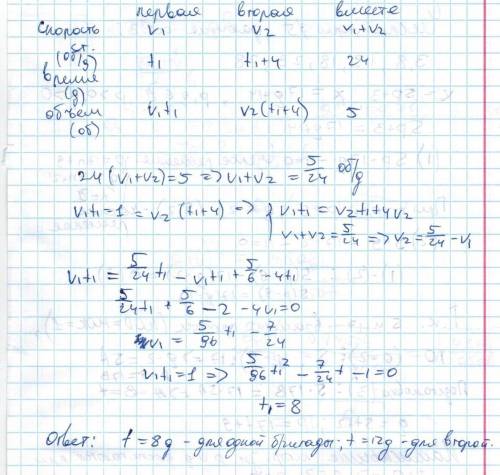 первая вторая вместе
скорость v₁ v₂ v₁+v₂
(об/д)
время t₁ t₁+4 24
(д)
объем v₁t₁ v₂(t₁+4) 5
(об)
24(v₁+v₂)=5 => v₁+v₂ = 5/24 об/д
v₁t₁=1=v₂(t₁+4) => { v₁t₁=v₂t₁+4v₂
v₁+v₂=5/24 => v₂=5/24-v₁
v₁t₁ = 5/24 t₁ - v₁t₁ + 5/6 - 4t₁
5/24 t₁ + 5/6 - 2 - 4v₁=0
v₁ = 5/96 t₁ - 7/24
v₁t₁=1 => 5/96 t₁² - 7/24 t - 1=0
t₁=8
Ответ: t=8д - для одной бригады; t=12д - для второй.